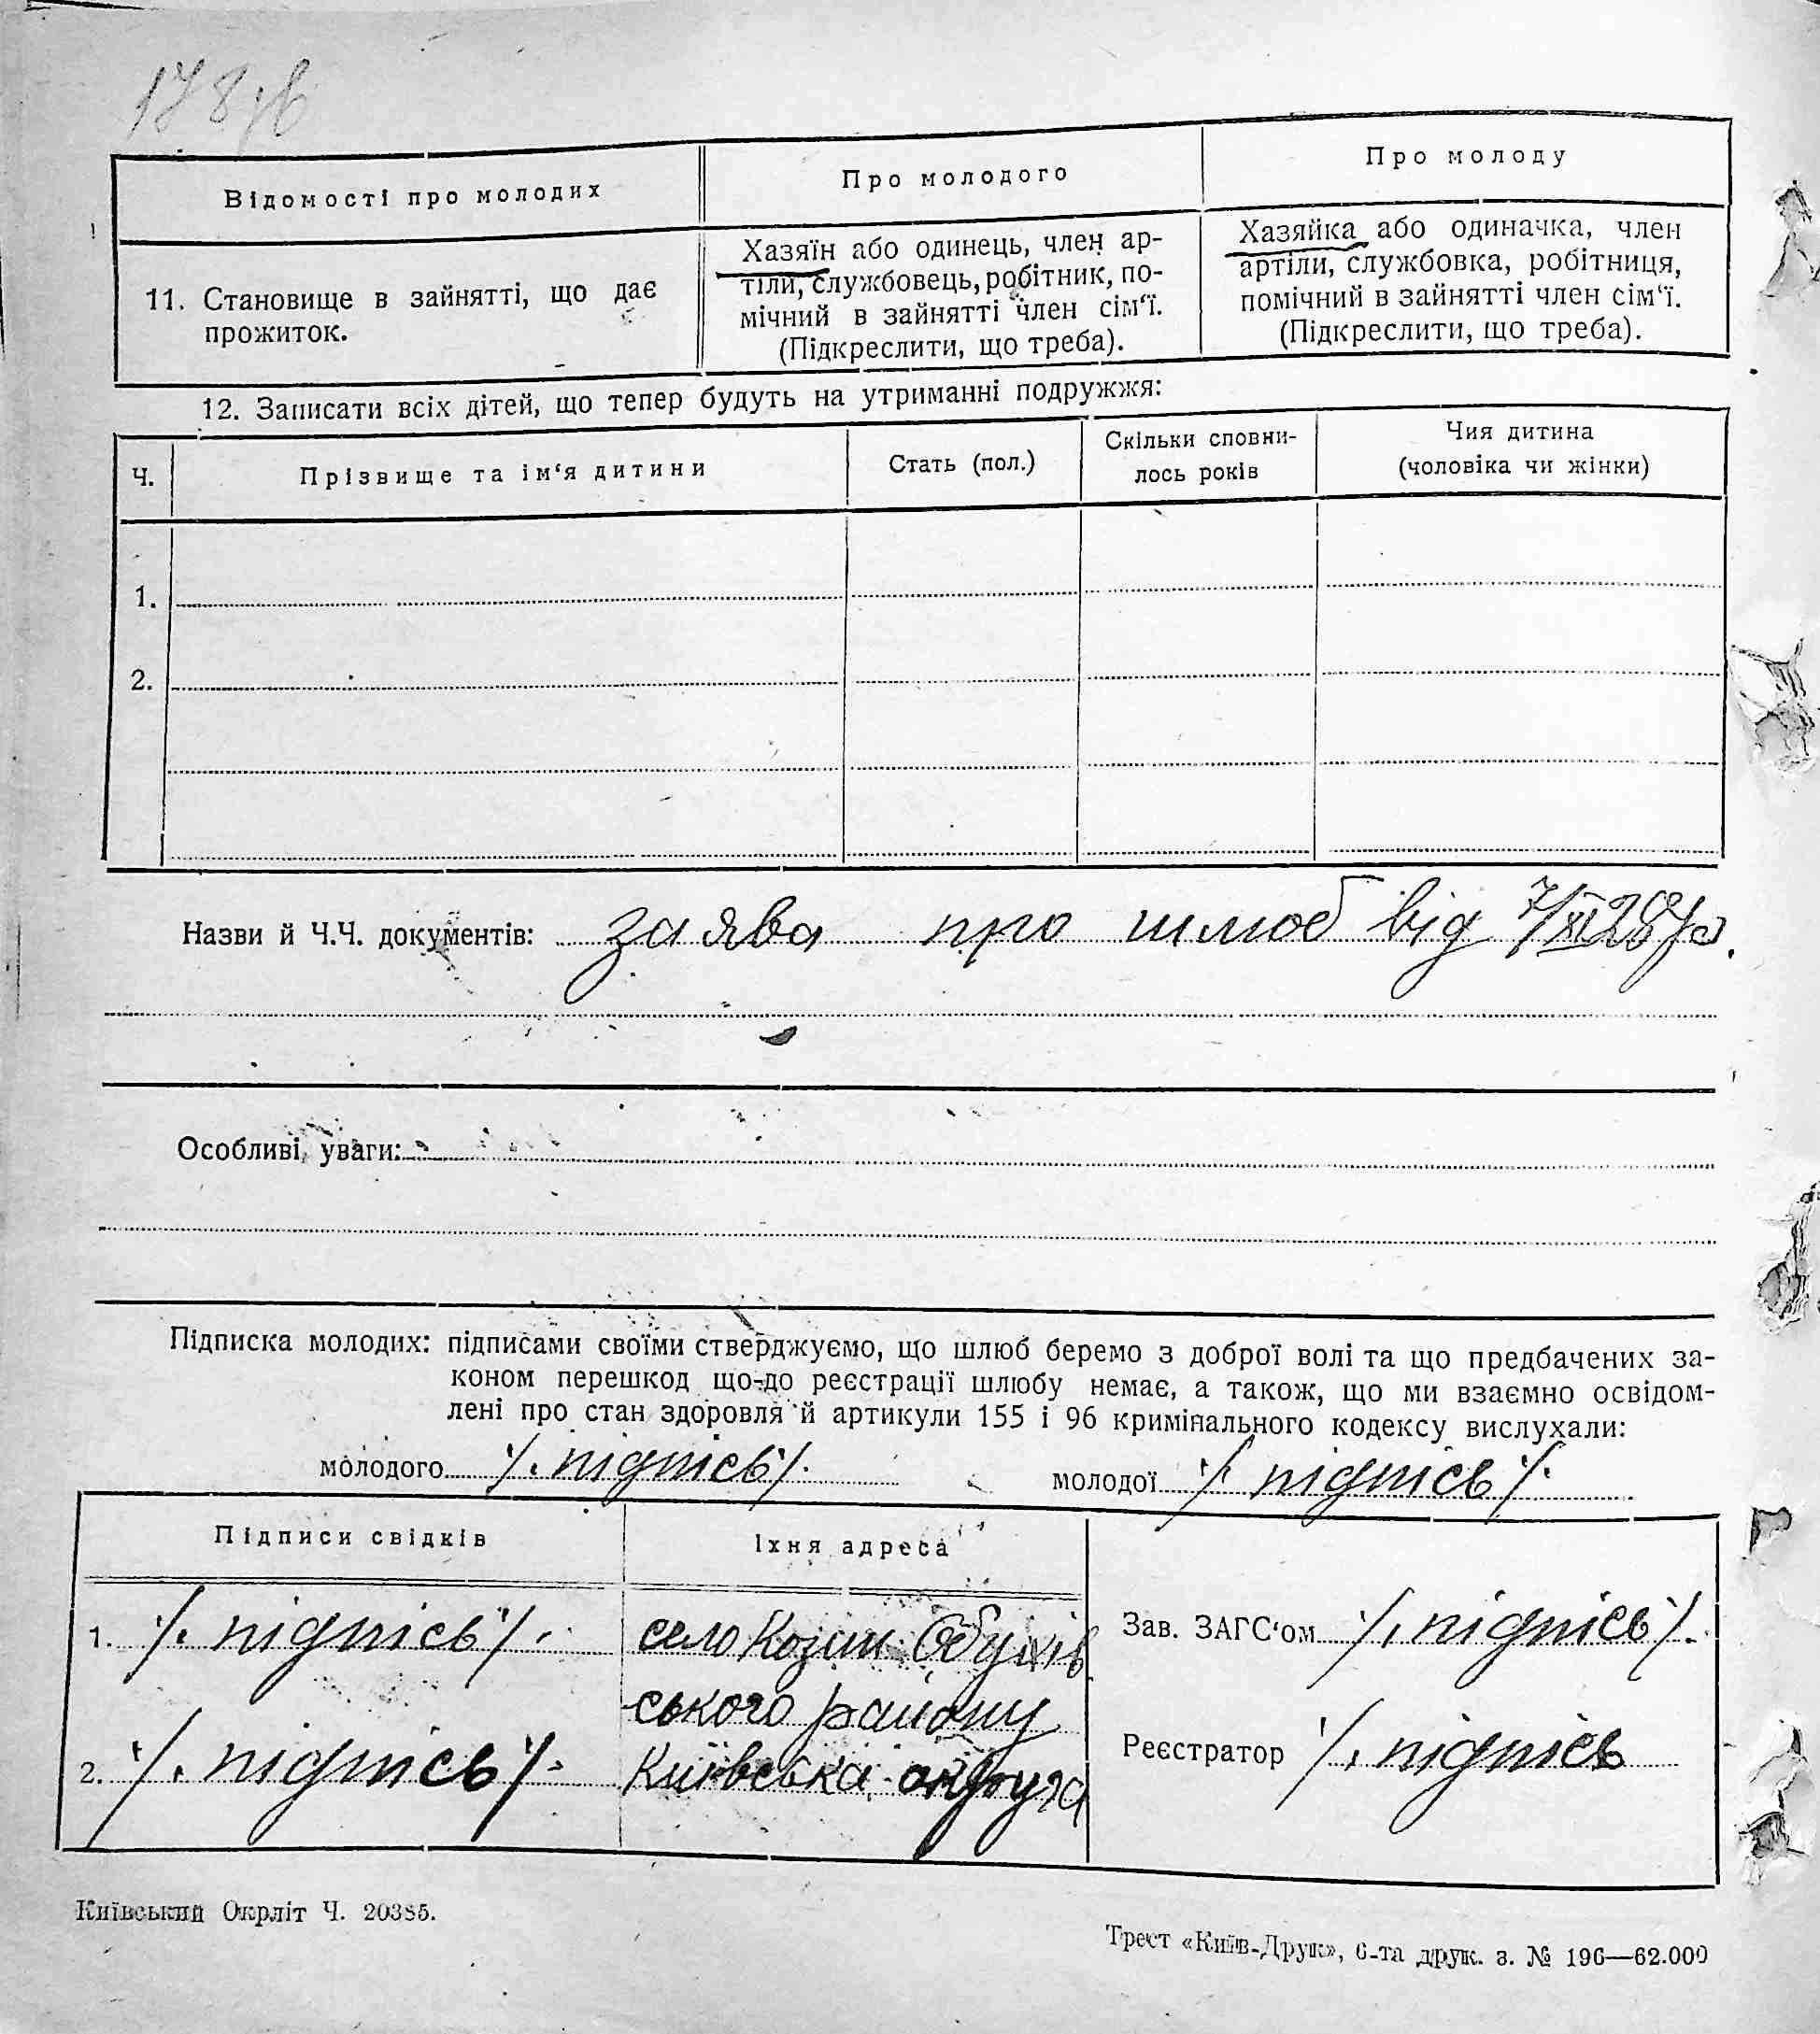 178 зв
Відомості про молодих
Про молодого
Про молоду
11. Становище в зайнятті, що дає
прожиток.
Хазяїн або одинець, член ар-
тіли, службовець, робітник, по-
мічний в зайнятті член сім‘ї.
(Підкреслити, що треба).
Хазяйка або одиначка, член
артіли, службовка, робітниця,
помічний в зайнятті член сім‘ї.
(Підкреслити, що треба).
12. Записати всіх дітей, що тепер будуть на утриманні подружжя:
Ч.
Прізвище та ім‘я дитини
Стать (пол.)
Скільки сповни-
лось років
Чия дитина
(чоловіка чи жінки)
1.
2.
Назви й Ч.Ч. документів: заява про шлюб від 7/XI 28 р.
Особливі уваги:
Підписка молодих: підписами своїми стверджуємо, що шлюб беремо з доброї волі та що предбачених за-
коном перешкод що-до реєстрації шлюбу немає, а також, що ми взаємно освідом-
лені про стан здоровля й артикули 155 і 96 кримінального кодексу вислухали:
молодого /. підпісь /.
молодої /. підпісь /.
Підписи свідків
Їхня адреса
1. /. підпісь /.
село Козин Обухів
2. /. підпісь /.
ського району
Київська округа
Зав. ЗАГС‘ом /. підпісь /.
Реєстратор /. підпісь
Київський Окрліт Ч. 20385.
Трест «Київ-Друк», 6-та друк. з. № 196—62.000